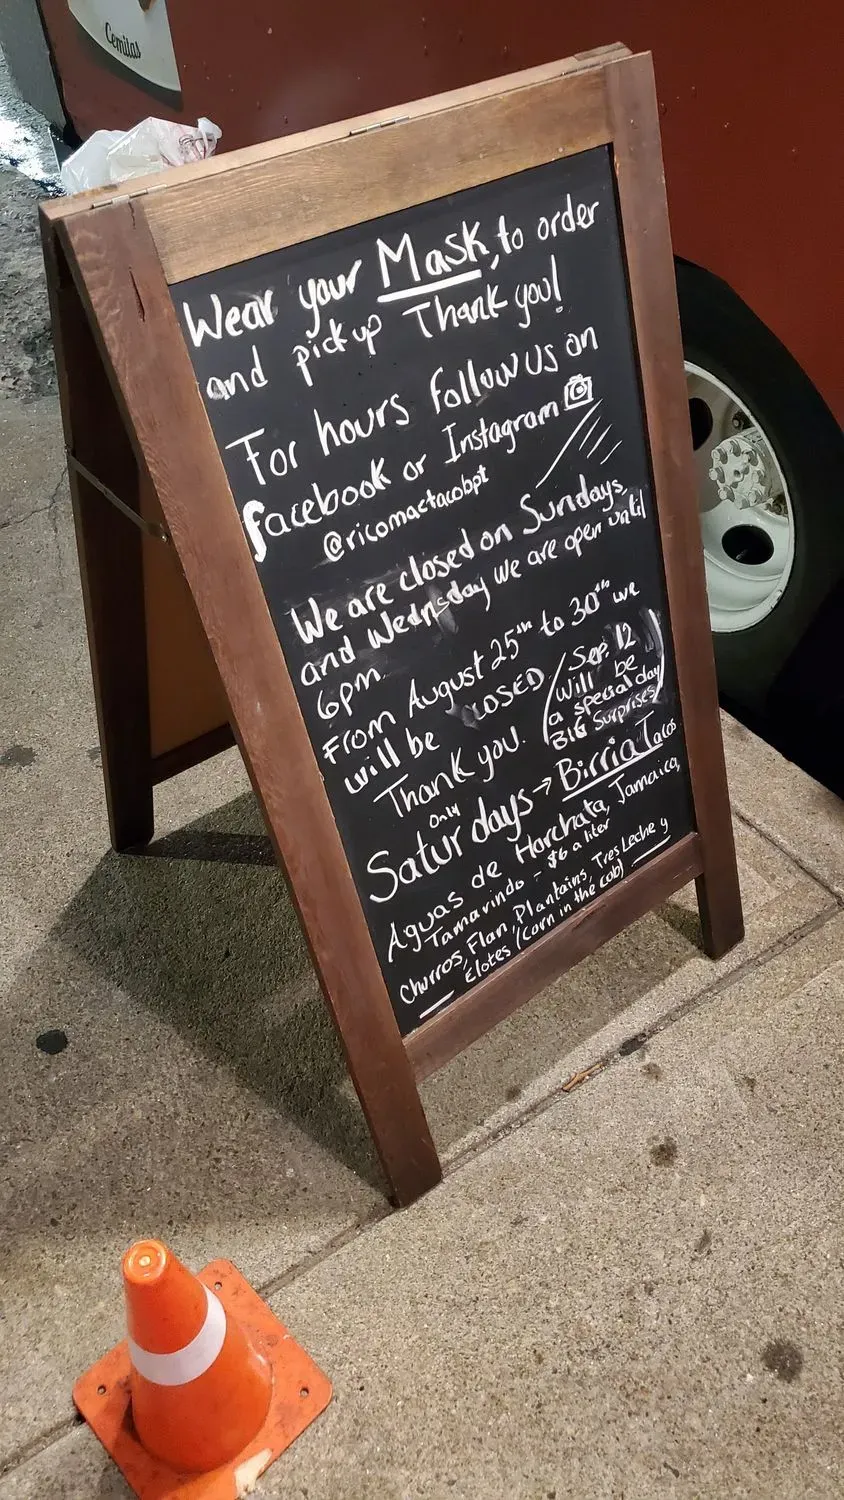 Cemitas
Wear your Mask, to order
and pick up Thank you!
For hours follow us on
facebook or Instagram
@ricomactacobpt
We are closed on Sundays,
and Wednesday we are open until
6pm.
From August 25th to 30th we
will be CLOSED
Thank you.
Sep. 12
will be
a special day
BIG Surprises
Only
Saturdays → Birria Tacos
Aguas de Horchata, Jamaica,
Tamarindo - $6 a liter
Churros, Flan, Plantains, Tres Leche y
Elotes (Corn in the cob)